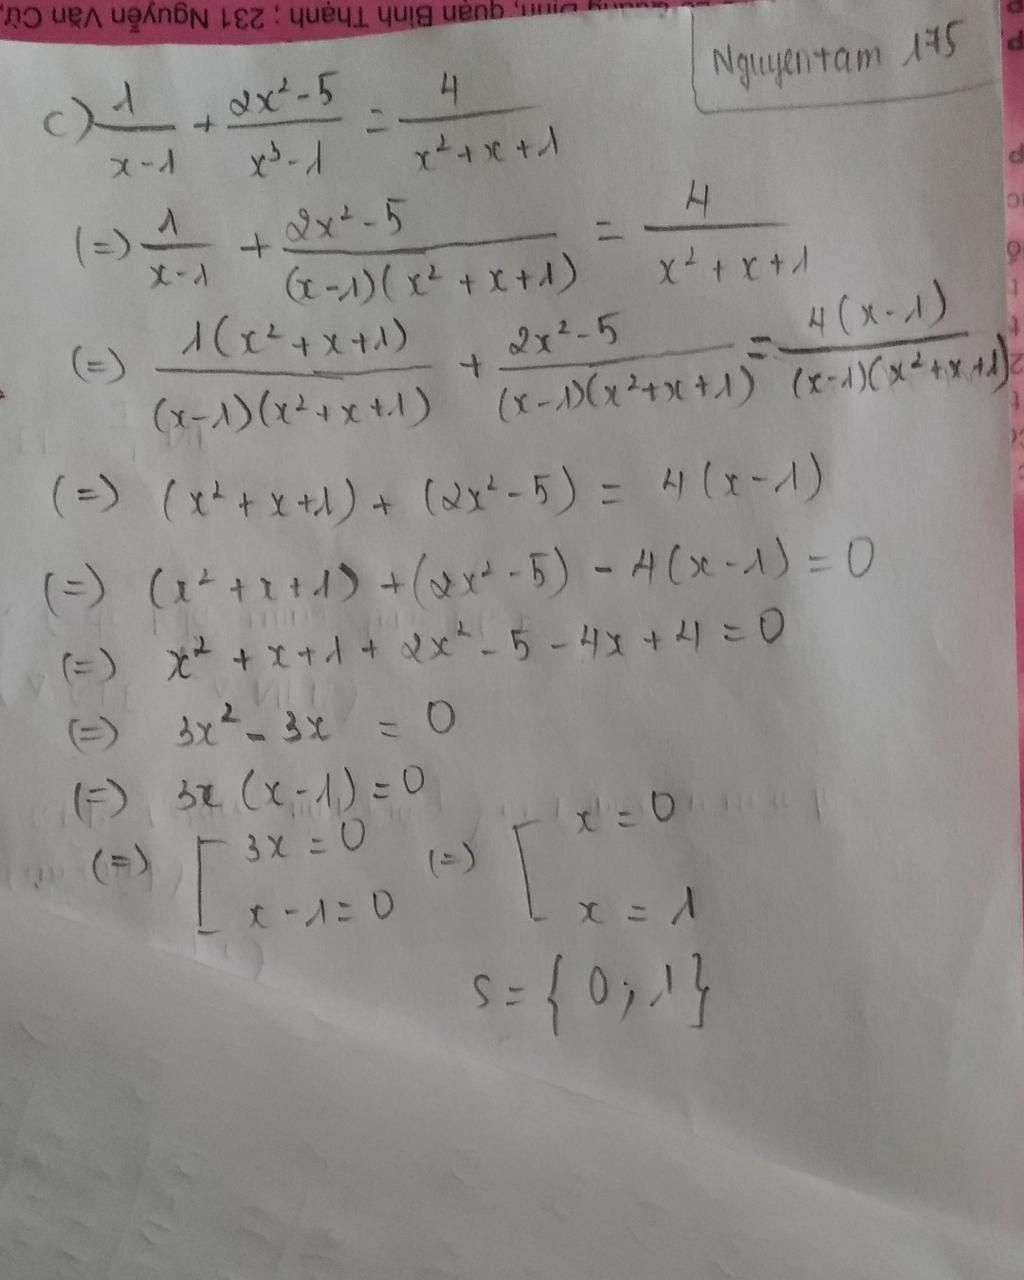 quận Bình Thạnh ; 231 Nguyễn Văn Cừ,
Nguyentam 175
c) 1/(x-1) + (2x²-5)/(x³-1) = 4/(x²+x+1)
(=) 1/(x-1) + (2x²-5)/((x-1)(x²+x+1)) = 4/(x²+x+1)
(=) 1(x²+x+1)/((x-1)(x²+x+1)) + (2x²-5)/((x-1)(x²+x+1)) = 4(x-1)/((x-1)(x²+x+1))
(=) (x²+x+1) + (2x²-5) = 4(x-1)
(=) (x²+x+1) + (2x²-5) - 4(x-1) = 0
(=) x² + x+1 + 2x² - 5 - 4x + 4 = 0
(=) 3x² - 3x = 0
(=) 3x (x-1) = 0
(=) [ 3x = 0 (=) [ x = 0
x - 1 = 0 x = 1
S = { 0 ; 1 }